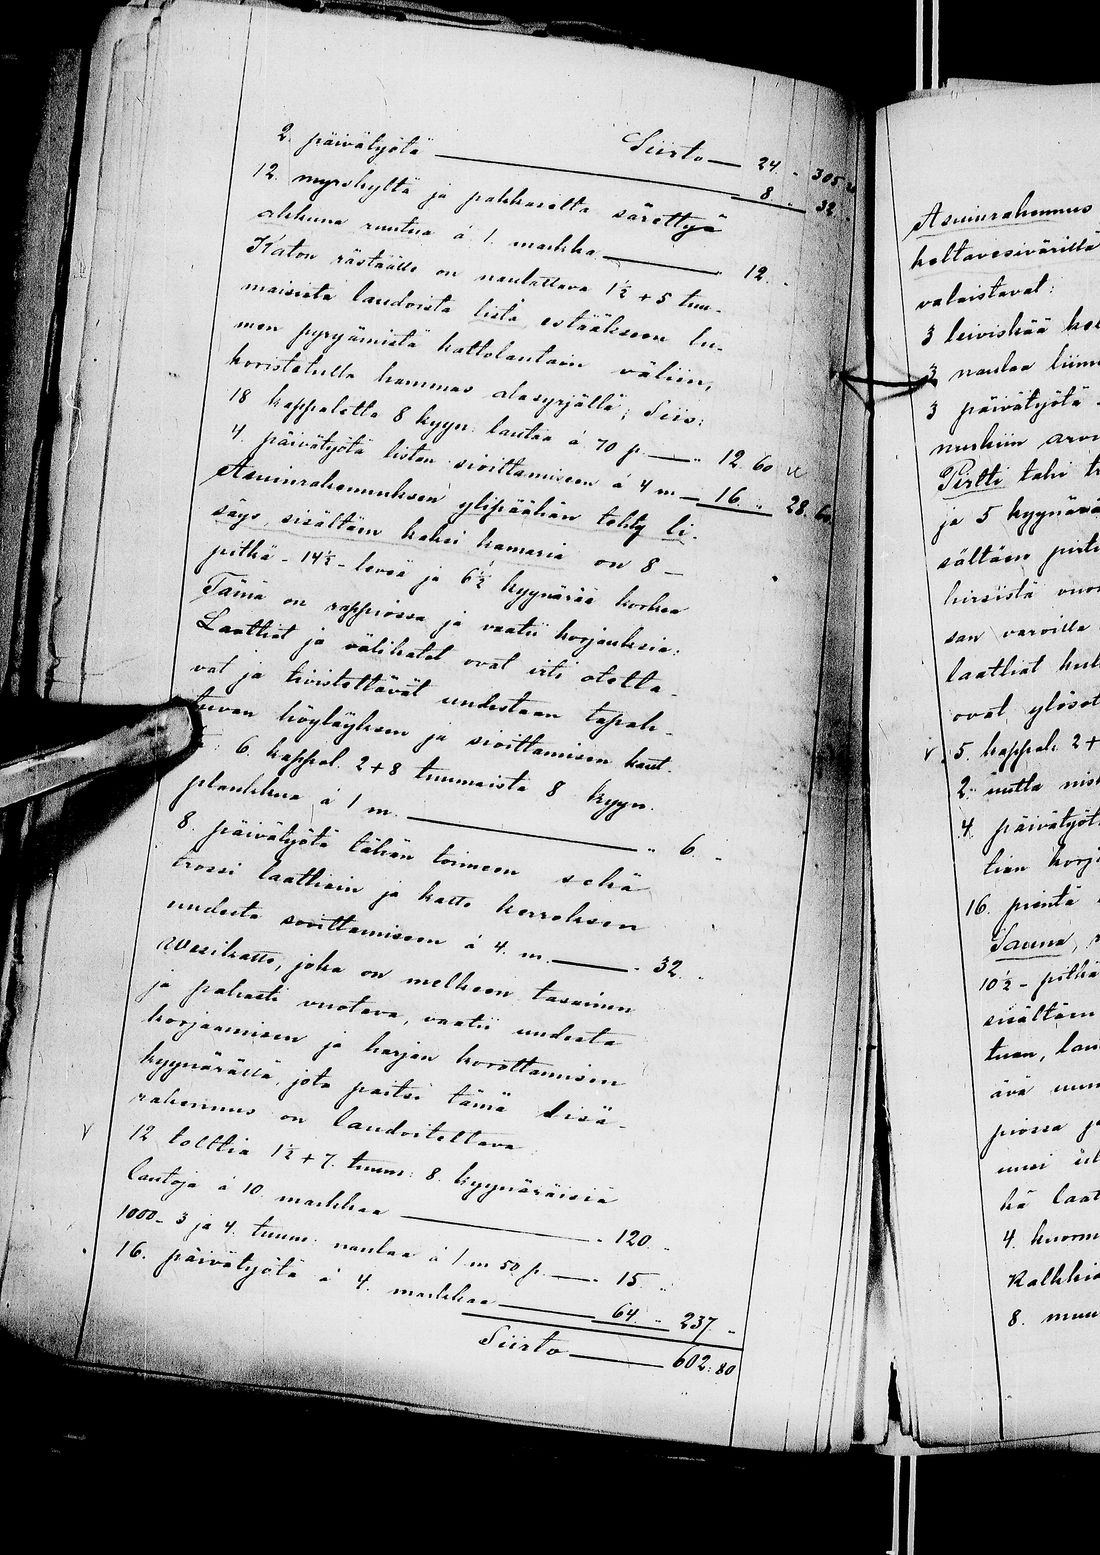 Siirto — 24. " 305.20
2. päivätyötä — 8 " 32. "
12. myrskyltä ja pakkaselta särettyä
akkuna ruutua á 1. markka — " 12. "
Katon räställe on naulattava 1½ + 5 tuu-
maisista laudoista lista estääkseen lu-
men pyryämistä kattolautain väliin,
koristetulla hammas alasyrjällä; Siis:
18 kappaletta 8 kyyn: lautaa á 70 p. — " 12. 60
4. päivätyötä listan sioittamiseen á 4 m — 16. " 28. 60
Asuinrakennuksen ylipäähän tehty li-
säys, sisältäin kaksi kamaria on 8 —
pitkä - 14½ - leveä ja 6½ kyynärää korkea
Tämä on rappiossa ja vaatii korjauksia:
Laattiat ja välikatot ovat irti otetta-
vat ja tiivistettävät uudestaan tapah-
tuvan höyläyksen ja sioittamisen kaut.
6. kappal. 2+8 tuumaista 8 kyyn.
plankkua á 1 m. — " 6. "
8. päivätyötä tähän toimeen sekä
trossi laattiain ja katto kerroksen
uudesta sovittamiseen á 4. m. — " 32 "
Wesikatto, joka on melkeen tasainen
ja pahasti vuotava, vaatii uudesta
korjaamisen ja harjan korottamisen
kyynärällä, jota paitsi tämä lisä-
rakennus on laudoitettava
12 tolttia 1½+7. tuum: 8. kyynäräisiä
lautoja á 10. markkaa — " 120. "
1000 - 3 ja 4. tuum. naulaa á 1 m 50 p. — " 15 "
16. päivätyötä á 4. markkaa — 64. " 237. "
Siirto — 602:80
Asuinrakennus
keltavesivärillä
valaistavat:
3 leiviskää
3 naulaa
3 päivätyötä
Pirtti tahi
ja 5 kyynärää
sältäin
hirsistä
san varoilla
laattiat
ovat
5. kappal. 2+
2. uutta
4. päivätyöt
tian
16. pientä
Sauna,
10½ - pitkä
sisältäin
8. muu